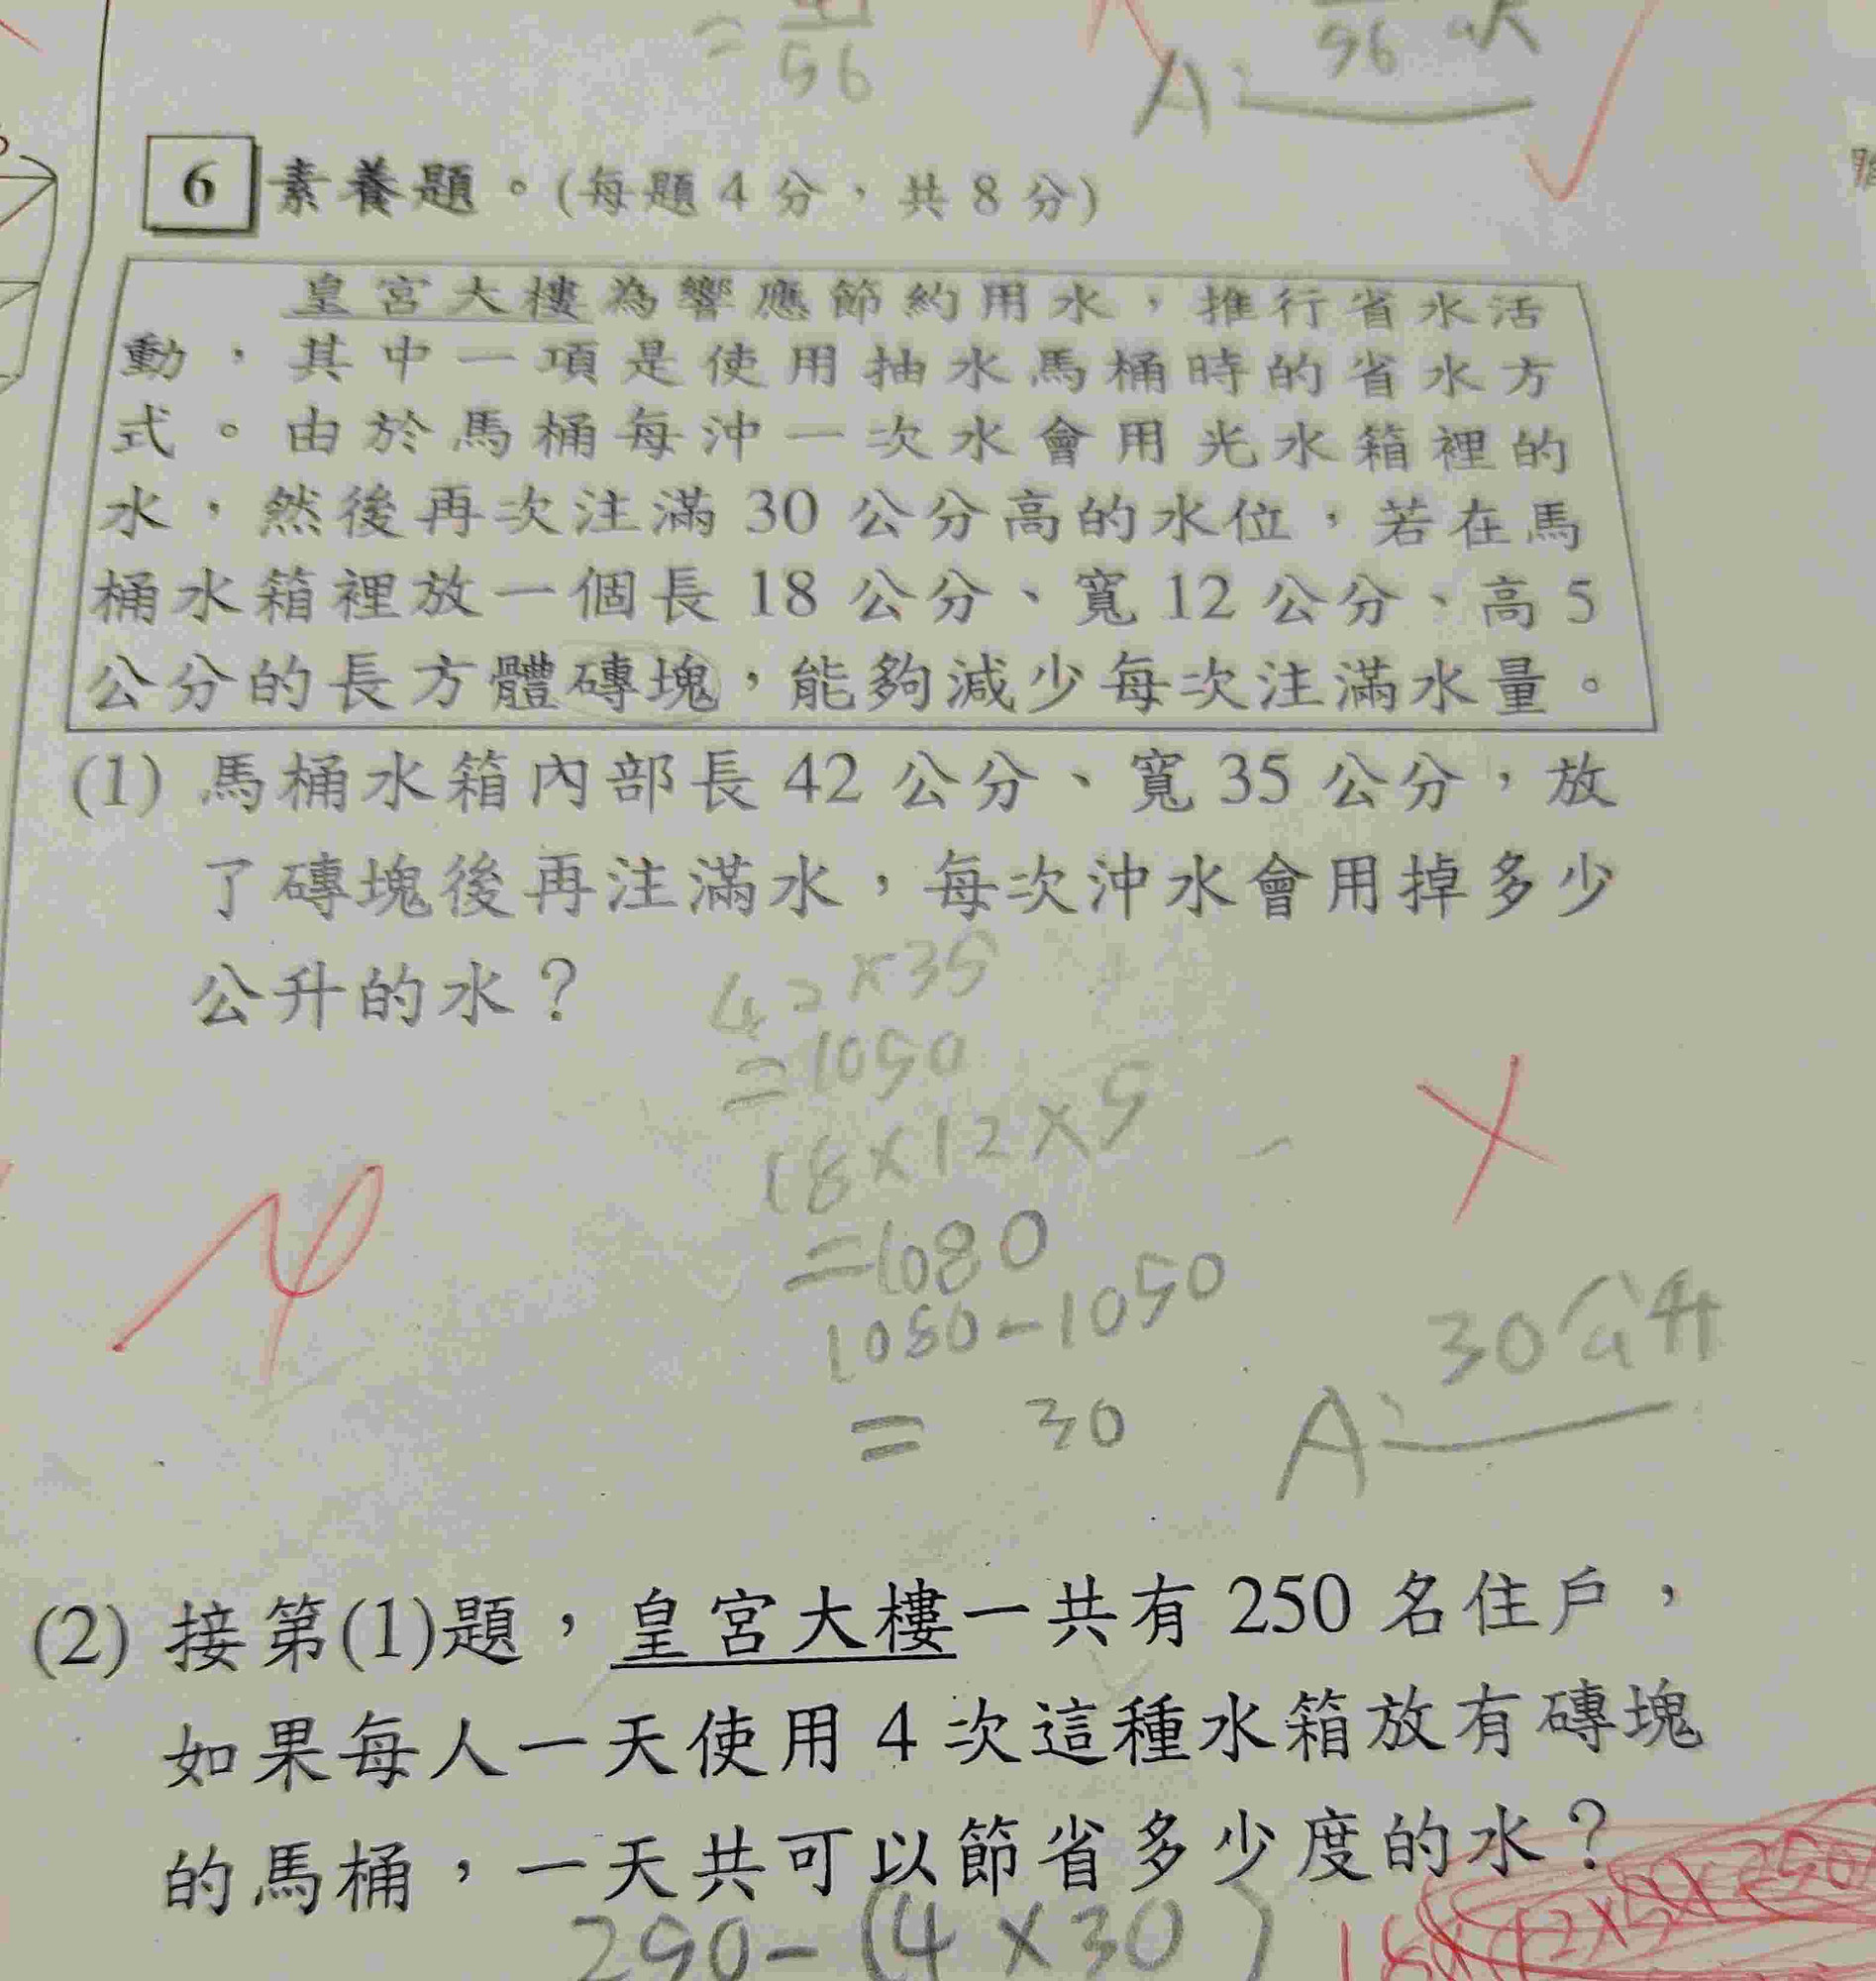 = 56
A: 56
6 素養題。(每題 4 分，共 8 分)
皇宮大樓為響應節約用水，推行省水活
動，其中一項是使用抽水馬桶時的省水方
式。由於馬桶每沖一次水會用光水箱裡的
水，然後再次注滿 30 公分高的水位，若在馬
桶水箱裡放一個長 18 公分、寬 12 公分、高 5
公分的長方體磚塊，能夠減少每次注滿水量。
(1) 馬桶水箱內部長 42 公分、寬 35 公分，放
了磚塊後再注滿水，每次沖水會用掉多少
公升的水？
42×35
=1050
18×12×5
=1080
1080-1050
= 30
A: 30公升
(2) 接第(1)題，皇宮大樓一共有 250 名住戶，
如果每人一天使用 4 次這種水箱放有磚塊
的馬桶，一天共可以節省多少度的水？
250-(4×30)